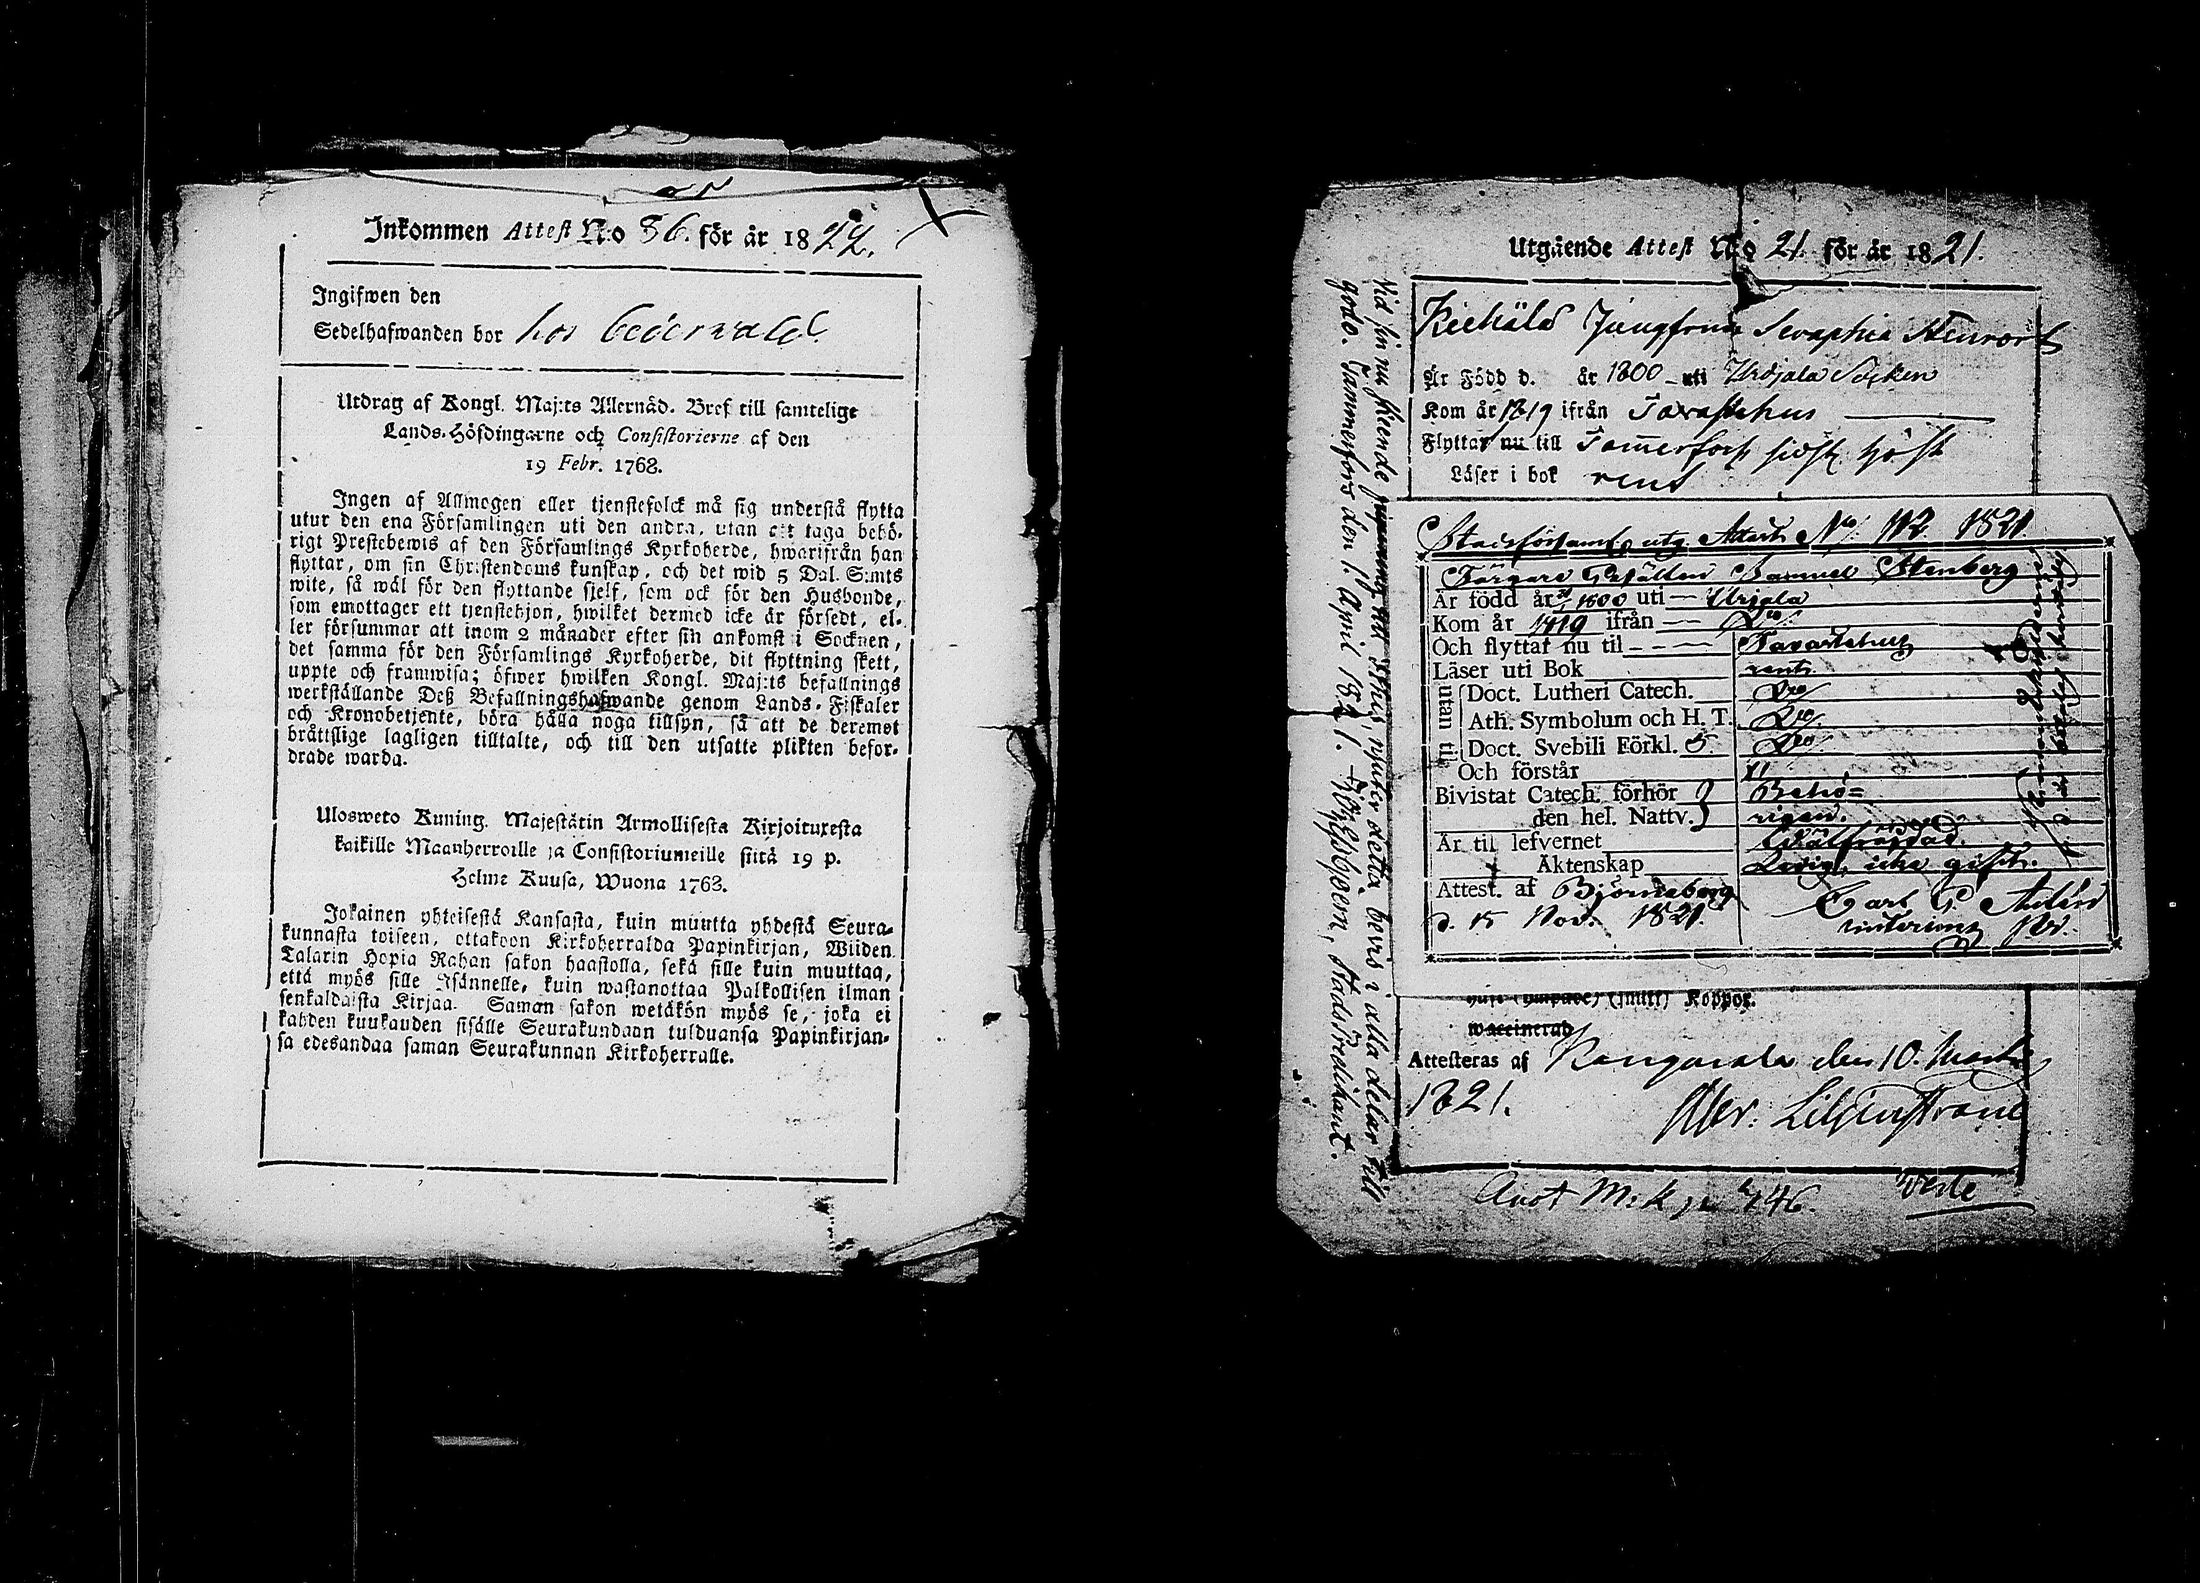 Inkommen Attest No 86. för år 1822.
Ingifwen den
Sedelhafwanden bor hos
Utdrag af Kongl. Maj:ts Allernåd. Bref till samtelige
Lands-Höfdingarne och Consistorierne af den
19 Febr. 1763.
Ingen af Allmogen eller tjenstefolck må sig understå flytta
utur den ena Församlingen uti den andra, utan ett taga behö-
rigt Prestebewis af den Församlings Kyrkoherde, hwarifrån han
flyttar, om sin Christendoms kunskap, och det wid 5 Dal. S:mts
wite, så wäl för den flyttande sjelf, som ock för den Husbonde,
som emottager ett tjenstehjon, hwilket dermed icke är försedt, el-
ler försummar att inom 2 månader efter sin ankomst i Socknen,
det samma för den Församlings Kyrkoherde, dit flyttning skett,
uppte och framwisa; öfwer hwilken Kongl. Maj:ts befallnings
werkställande Deß Befallningshafwande genom Lands-Fiskaler
och Kronobetjente, böra hålla noga tillsyn, så att de deremot
bråttslige lagligen tilltalte, och till den utsatte plikten befor-
drade warda.
Ulosweto Kuning. Majestätin Armollisesta Kirjoituxesta
kaikille Maanherroille ja Consistoriumeille siitä 19 p.
Helme Kuusa, Wuona 1763.
Jokainen yhteisestä Kansasta, kuin muutta yhdestä Seura-
kunnasta toiseen, ottakoon Kirkoherralda Papinkirjan, Wiiden
Talarin Hopia Rahan sakon haastolla, sekä sille kuin muuttaa,
että myös sille Isännelle, kuin wastanottaa Palkollisen ilman
senkaldaista Kirjaa. Saman sakon wetäkön myös se, joka ei
kahden kuukauden sisälle Seurakundaan tulduansa Papinkirjan-
sa edesandaa saman Seurakunnan Kirkoherralle.
Utgående Attest No 21. för år 1821.
Jungfrun Seraphia
Är Född d. år 1800 - uti Urdjala Socken
Kom år 1819 ifrån Tavastehus
Flyttar nu till
Läser i bok rent
Stadsförsaml. utg. Attest No 112 1821.
Färgare Gesällen Samuel Stenberg
Är född år 1800 uti - Urjala
Kom år 1819 ifrån - Do
Och flyttar nu til - - - Tavastehus
Läser uti Bok rent
utan til
Doct. Lutheri Catech. Do
Ath. Symbolum och H. T. Do
Doct. Svebili Förkl. 5. Do
Och förstår
Bivistat Catech. förhör Behö=
den hel. Nattv. rigen.
Är til lefvernet Wälfrejdad.
Äktenskap Ledig, icke gift.
Attest. af Björneborg
d. 15 Nov. 1821.
Carl G.
haft (hittills) (intet) Koppor.
waccinerad
Attesteras af Kangasala den 10. Martii
1821.
Aler. Liljenstrand
Verte
Vid sin nu skeende
njuter detta bevis i alla delar till
godo. Tammerfors den 1 April 1821.